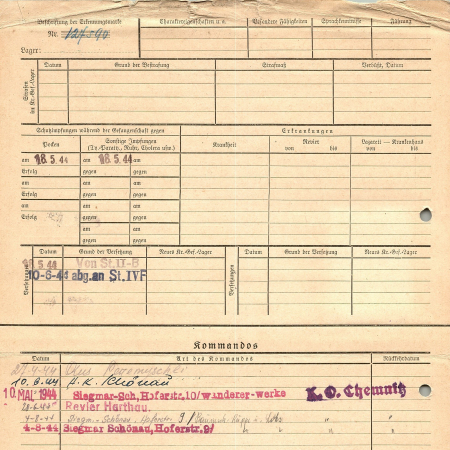 Beschriftung der Erkennungsmarke
Charaktereigenschaften u. a.
Besondere Fähigkeiten
Sprachkenntnisse
Führung
Nr.
Lager:
Strafen im Kr.-Gef.-Lager
Datum
Grund der Bestrafung
Strafmaß
Verbüßt, Datum
Schutzimpfungen während der Gefangenschaft gegen
Erkrankungen
Pocken
Sonstige Impfungen
(Ty.-Paraty., Ruhr, Cholera usw.)
Krankheit
Revier
von bis
Lazarett — Krankenhaus
von bis
am 18.5.44 am 18.5.44 am
Erfolg gegen gegen
am am am
Erfolg gegen gegen
am am am
Erfolg gegen gegen
am am
gegen gegen
Versetzungen
Datum
Grund der Versetzung
Neues Kr.-Gef.-Lager
Versetzungen
Datum
Grund der Versetzung
Neues Kr.-Gef.-Lager
8.5.44 Von St.II-B
10-6-44 abg.an St.IVF
Kommandos
Datum
Art des Kommandos
Rückkehrdatum
27.4.44
10.6.44 A.K. Schönau
10. MAI 1944 Siegmar-Sch, Hoferstr.10/wanderer-werke K.O. Chemnitz
28-6-44 Revier Harthau.
4-8-44 Siegm.-Schönau, Hoferstr. 9/
4-8-44 Siegmar Schönau, Hoferstr.9/